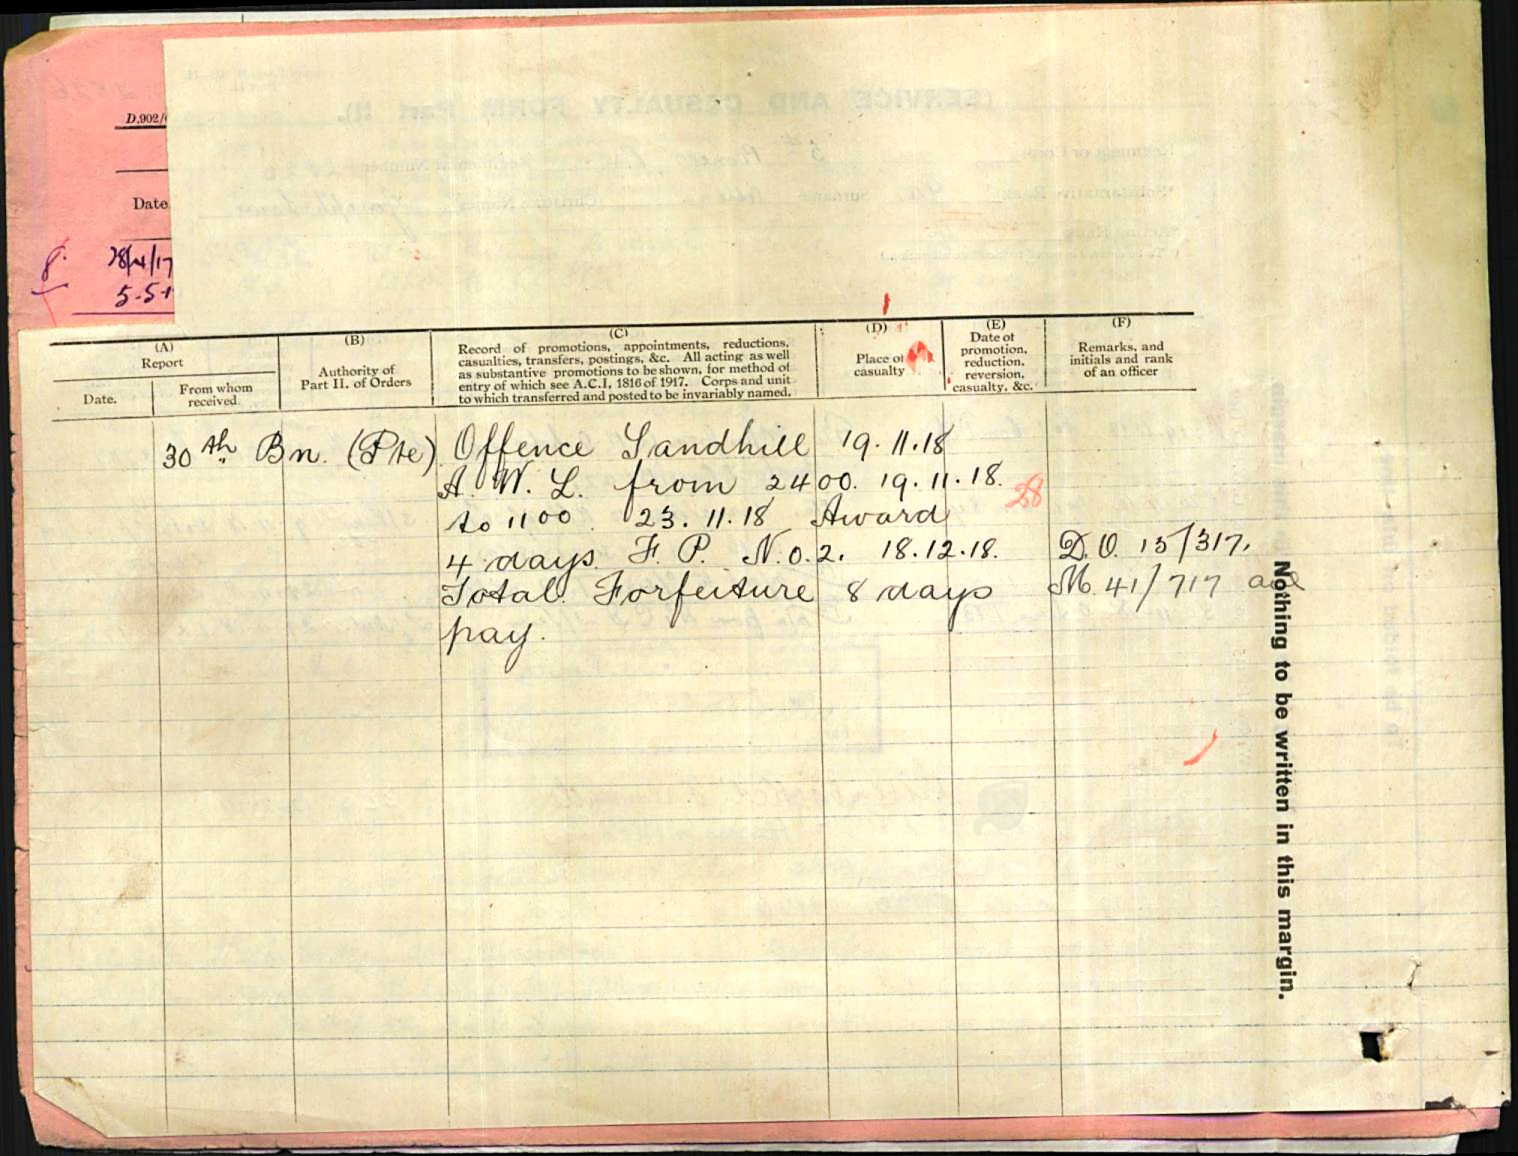 D.902/
Date
8.
28/4/17
5-5-1
(A)
Report
Date.
From whom
received.
(B)
Authority of
Part II. of Orders
(C)
Record of promotions, appointments, reductions,
casualties, transfers, postings, &c. All acting as well
as substantive promotions to be shown, for method of
entry of which see A.C.I. 1816 of 1917. Corps and unit
to which transferred and posted to be invariably named.
(D)
Place of
casualty
(E)
Date of
promotion,
reduction,
reversion,
casualty, &c.
(F)
Remarks, and
initials and rank
of an officer
30th Bn. (Pte) Offence Sandhill 19.11.18
A. W. L. from 2400. 19.11.18.
to 1100 23.11.18 Award
28
4 days F. P. No. 2. 18.12.18. D.O. 15/317.
Total Forfeiture 8 days M. 41/717
pay.
Nothing to be written in this margin.